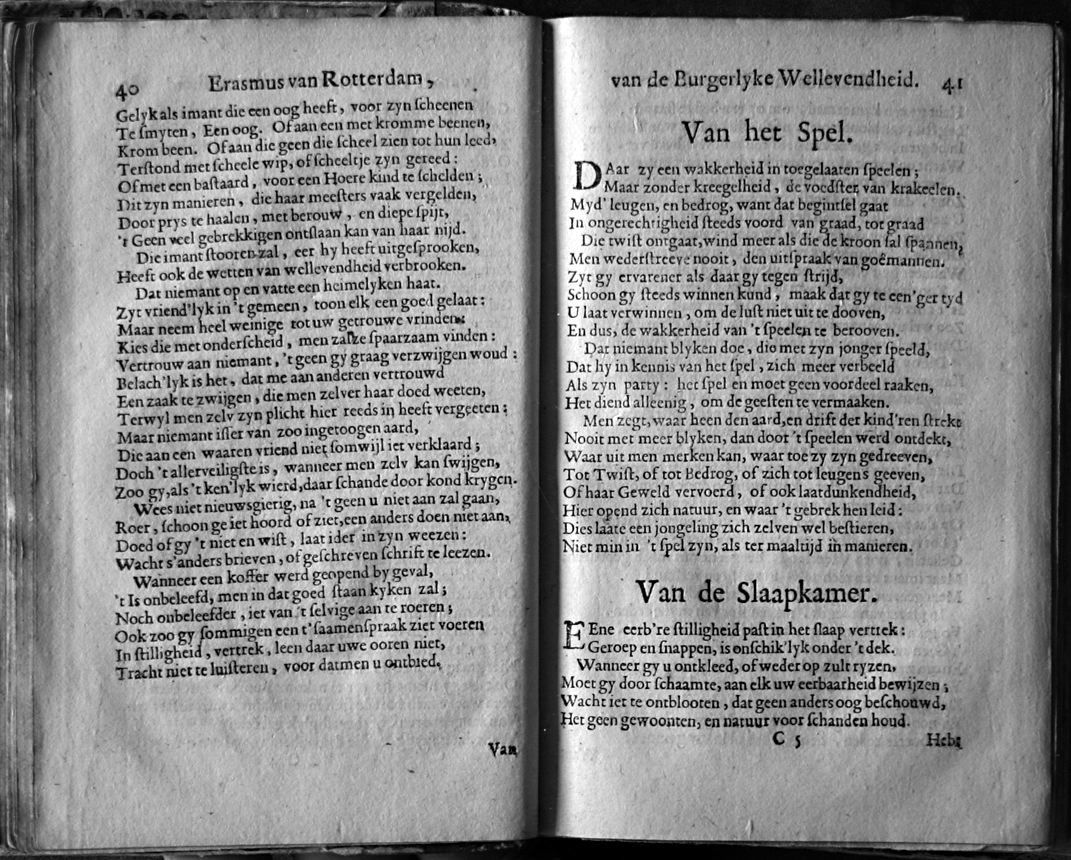 40 Erasmus van Rotterdam,
Gelyk als imant die een oog heeft, voor zyn ſcheenen
Te ſmyten, Een oog. Of aan een met kromme beenen,
Krom been. Of aan die geen die ſcheel zien tot hun leed,
Terſtond met ſcheele wip, of ſcheeltje zyn gereed:
Of met een baſtaard, voor een Hoere kind te ſchelden;
Dit zyn manieren, die haar meeſters vaak vergelden,
Door prys te haalen, met berouw, en diepe ſpijt,
't Geen veel gebrekkigen ontſlaan kan van haar nijd.
Die imant ſtooren zal, eer hy heeft uitgeſprooken,
Heeft ook de wetten van wellevendheid verbrooken.
Dat niemant op en vatte een heimelyken haat.
Zyt vriend'lyk in 't gemeen, toon elk een goed gelaat:
Maar neem heel weinige tot uw getrouwe vrinden:
Kies die met onderſcheid, men zalze ſpaarzaam vinden:
Vertrouw aan niemant, 't geen gy graag verzwijgen woud:
Belach'lyk is het, dat me aan anderen vertrouwd
Een zaak te zwijgen, die men zelver haar doed weeten,
Terwyl men zelv zyn plicht hier reeds in heeft vergeeten:
Maar niemant iſſer van zoo ingetoogen aard,
Die aan een waaren vriend niet ſomwijl iet verklaard;
Doch 't allerveiligſte is, wanneer men zelv kan ſwijgen,
Zoo gy, als 't ken'lyk wierd, daar ſchande door kond krygen.
Wees niet nieuwsgierig, na 't geen u niet aan zal gaan,
Roer, ſchoon ge iet hoord of ziet, een anders doen niet aan,
Doed of gy 't niet en wiſt, laat ider in zyn weezen:
Wacht s'anders brieven, of geſchreven ſchrift te leezen.
Wanneer een koffer werd geopend by geval,
't Is onbeleefd, men in dat goed ſtaan kyken zal;
Noch onbeleefder, iet van 't ſelvige aan te roeren;
Ook zoo gy ſommigen een t'ſaamenſpraak ziet voeren
In ſtilligheid, vertrek, leen daar uwe ooren niet,
Tracht niet te luiſteren, voor datmen u ontbied.
Van
van de Burgerlyke Wellevendheid. 41
Van het Spel.
DAar zy een wakkerheid in toegelaaten ſpeelen;
Maar zonder kreegelheid, de voedſter van krakeelen.
Myd' leugen, en bedrog, want dat beginſel gaat
In ongerechtigheid ſteeds voord van graad, tot graad
Die twiſt ontgaat, wind meer als die de kroon ſal ſpannen,
Men wederſtreeve nooit, den uitſpraak van goê mannen.
Zyt gy ervarener als daar gy tegen ſtrijd,
Schoon gy ſteeds winnen kund, maak dat gy te een'ger tyd
U laat verwinnen, om de luſt niet uit te dooven,
En dus, de wakkerheid van 't ſpeelen te berooven.
Dat niemant blyken doe, die met zyn jonger ſpeeld,
Dat hy in kennis van het ſpel, zich meer verbeeld
Als zyn party: het ſpel en moet geen voordeel raaken,
Het diend alleenig, om de geeſten te vermaaken.
Men zegt, waar heen den aard, en drift der kind'ren ſtrekt
Nooit met meer blyken, dan door 't ſpeelen werd ontdekt,
Waar uit men merken kan, waar toe zy zyn gedreeven,
Tot Twiſt, of tot Bedrog, of zich tot leugens geeven,
Of haar Geweld vervoerd, of ook laatdunkendheid,
Hier opend zich natuur, en waar 't gebrek hen leid:
Dies laate een jongeling zich zelven wel beſtieren,
Niet min in 't ſpel zyn, als ter maaltijd in manieren.
Van de Slaapkamer.
EEne eerb're ſtilligheid paſt in het ſlaap vertrek:
Geroep en ſnappen, is onſchik'lyk onder 't dek.
Wanneer gy u ontkleed, of weder op zult ryzen,
Moet gy door ſchaamte, aan elk uw eerbaarheid bewijzen;
Wacht iet te ontblooten, dat geen anders oog beſchouwd,
Het geen gewoonten, en natuur voor ſchanden houd.
C 5 Hebt